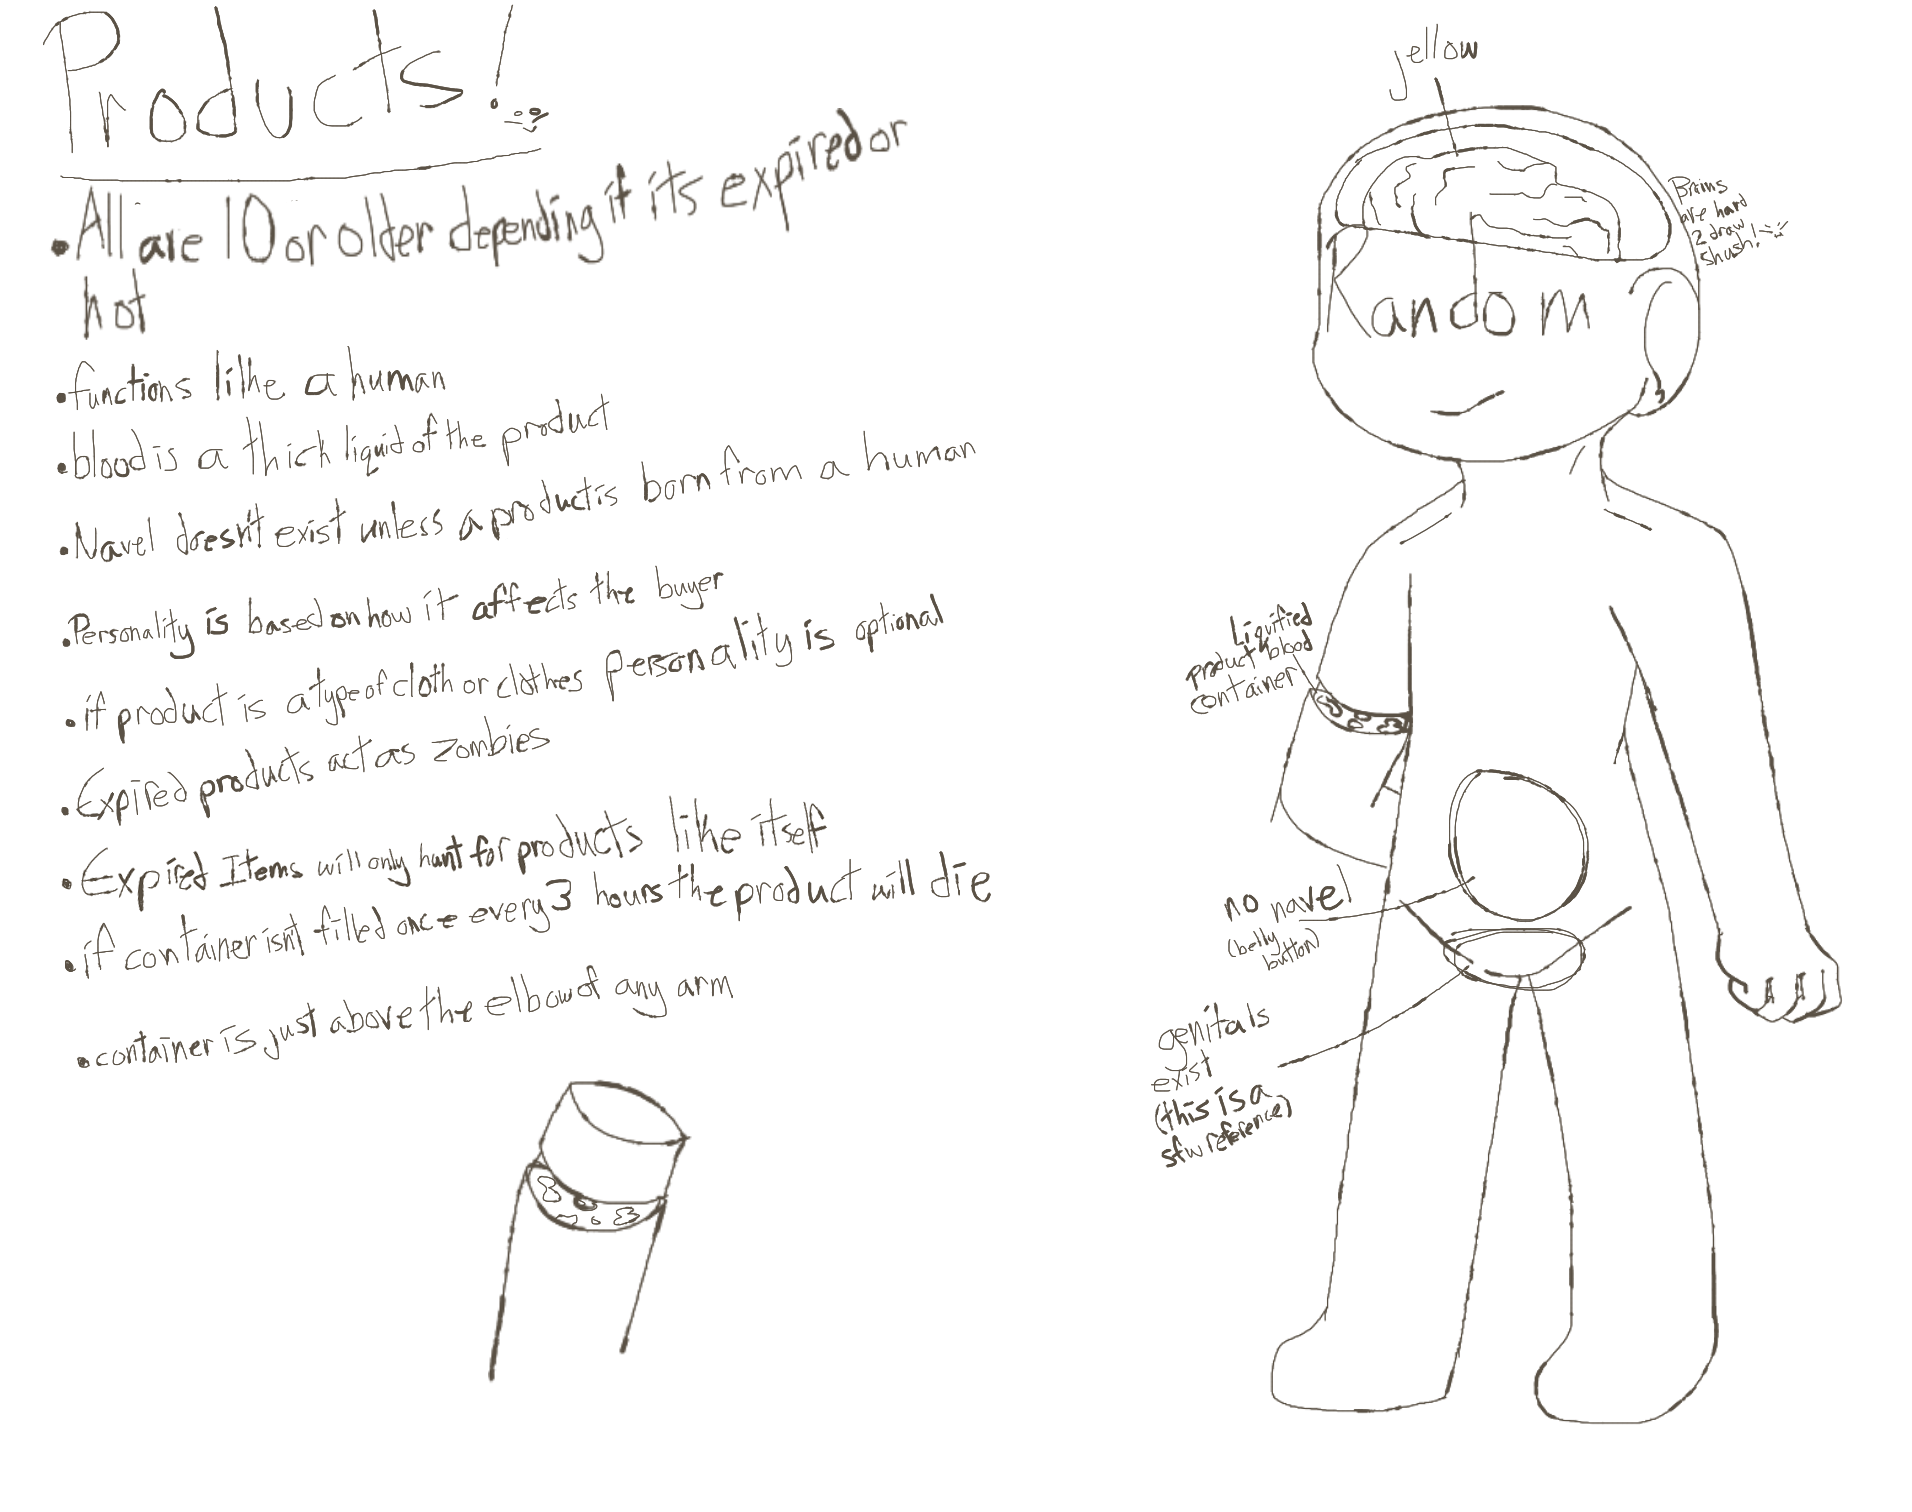 Products!
• All are 10 or older depending if its expired or
not
• functions like a human
• blood is a thick liquid of the product
• Navel doesn't exist unless a product is born from a human
• Personality is based on how it affects the buyer
• if product is a type of cloth or clothes personality is optional
• Expired products act as zombies
• Expired Items will only hunt for products like itself
• if container isn't filled once every 3 hours the product will die
• container is just above the elbow of any arm
yellow
Brains
are hard
2 draw
shush!
Random
Liquified
product blood
container
no navel
(belly
button)
genitals
exist
(this is a
sfw reference)